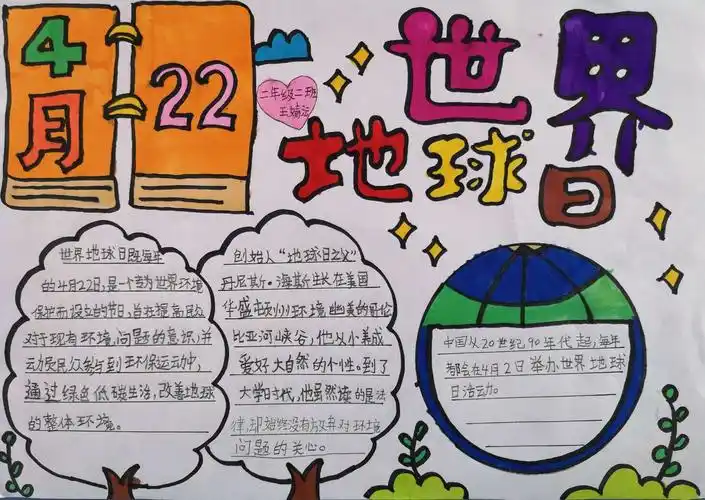 4
月
22
二年级二班
世界
地球
日
世界地球日即每年
的4月22日,是一个专为世界环境
保护而设立的节日,旨在提高民众
对于现有环境问题的意识,并
动员民众参与到环保运动中,
通过绿色低碳生活,改善地球
的整体环境。
创始人“地球日之父”
丹尼斯·海斯生长在美国
华盛顿州环境幽美的哥伦
比亚河峡谷,他从小养成
爱好大自然的个性。到了
大学时代,他虽然读的是法
律,却始终没有放弃对环境
问题的关心。
中国从20世纪90年代起,每年
都会在4月2日举办世界地球
日活动。